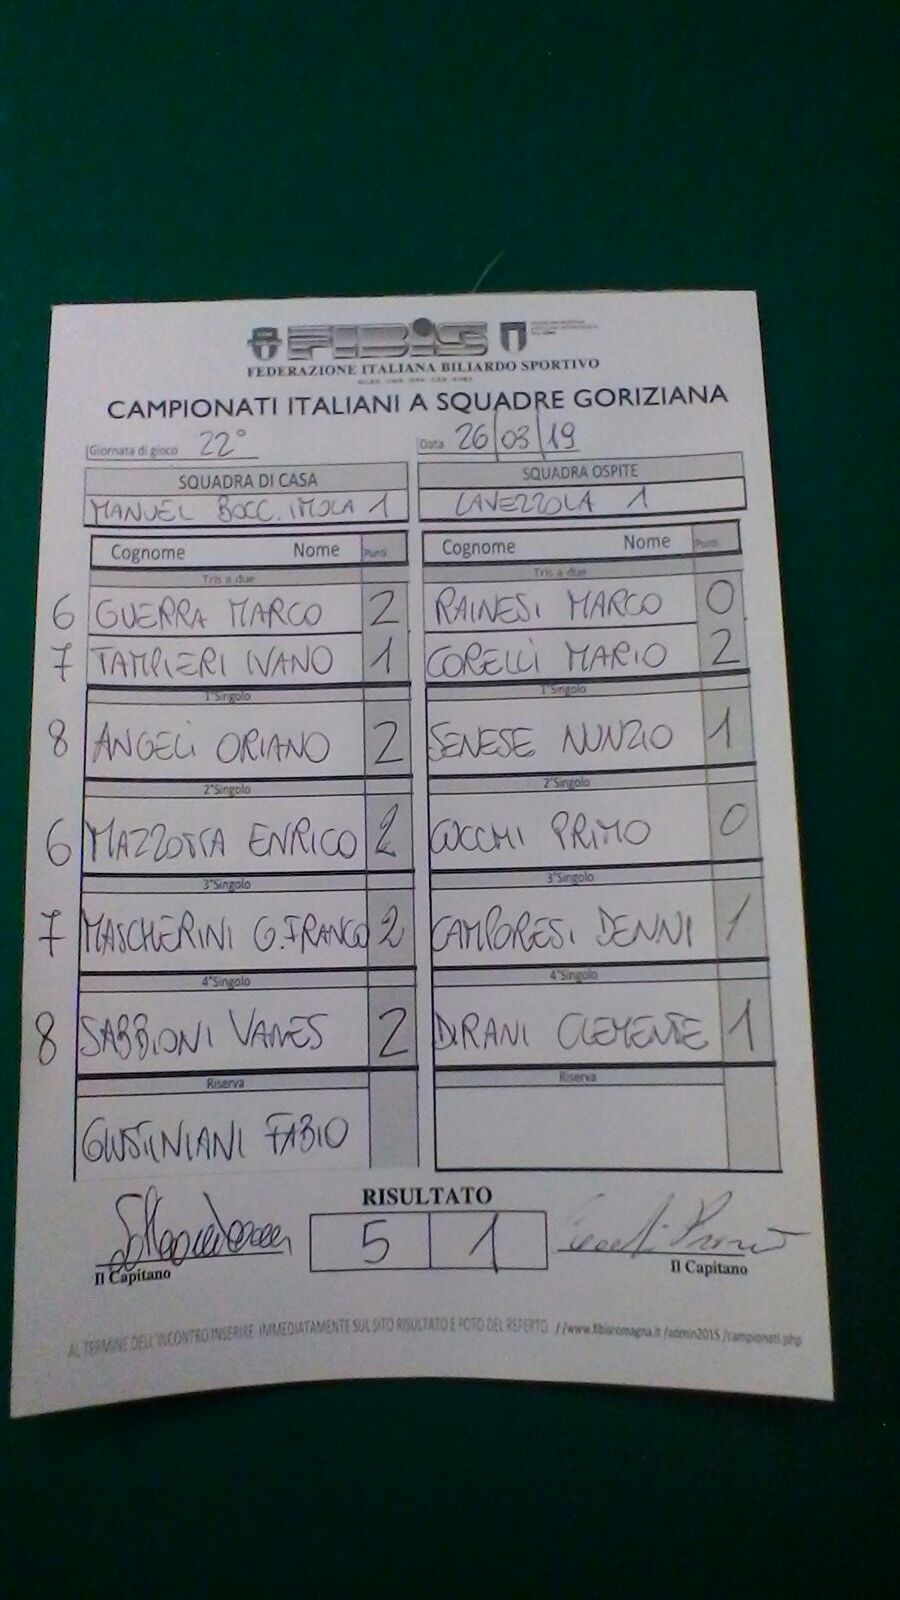 FIBIS
FEDERAZIONE ITALIANA BILIARDO SPORTIVO
CAMPIONATI ITALIANI A SQUADRE GORIZIANA
Giornata di gioco 22° Data 26/03/19
SQUADRA DI CASA SQUADRA OSPITE
MANUEL BOCC. IMOLA 1 LAVEZZOLA 1
Cognome Nome Punti Cognome Nome Punti
Tris a due Tris a due
6 GUERRA MARCO 2 RAINESI MARCO 0
7 TAMPIERI IVANO 1 CORELLI MARIO 2
1°Singolo 1°Singolo
8 ANGELI ORIANO 2 SENESE NUNZIO 1
2°Singolo 2°Singolo
6 MAZZOTTA ENRICO 2 CUCCHI PRIMO 0
3°Singolo 3°Singolo
7 MASCHERINI G.FRANCO 2 CAMPORESI DENNI 1
4°Singolo 4°Singolo
8 SABBIONI VANES 2 DIRANI CLEMENTE 1
Riserva Riserva
GIUSTINIANI FABIO
RISULTATO
5 1
Il Capitano Il Capitano
AL TERMINE DELL'INCONTRO INSERIRE IMMEDIATAMENTE SUL SITO RISULTATO E FOTO DEL REFERTO //www.fibisromagna.it /admin2015 /campionati.php